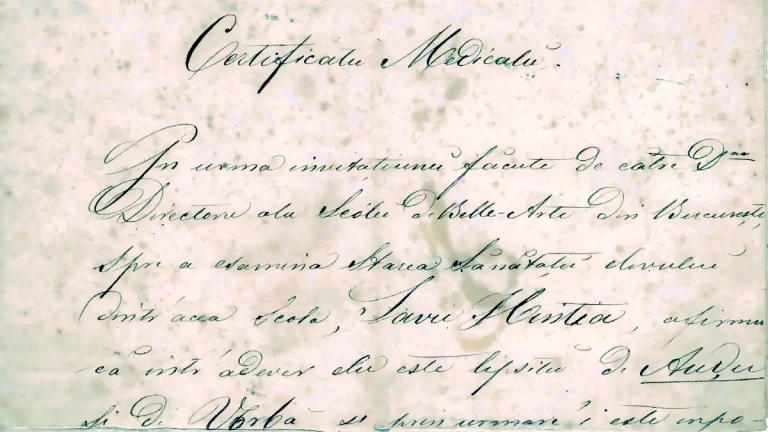 Certificatu Medicalŭ.
In urma invitațiuneĭ făcute de către Dnu
Directore alu Scólei de Belle-Arte din Bucureștĭ,
spre a esamina Starea Sănătateĭ elevuluĭ
dintr'acea Scola, Savu Hentia, afirmu
că intr'adever elu este lipsitu de Audu
și de Vorbă și prin urmare 'i este inpo-